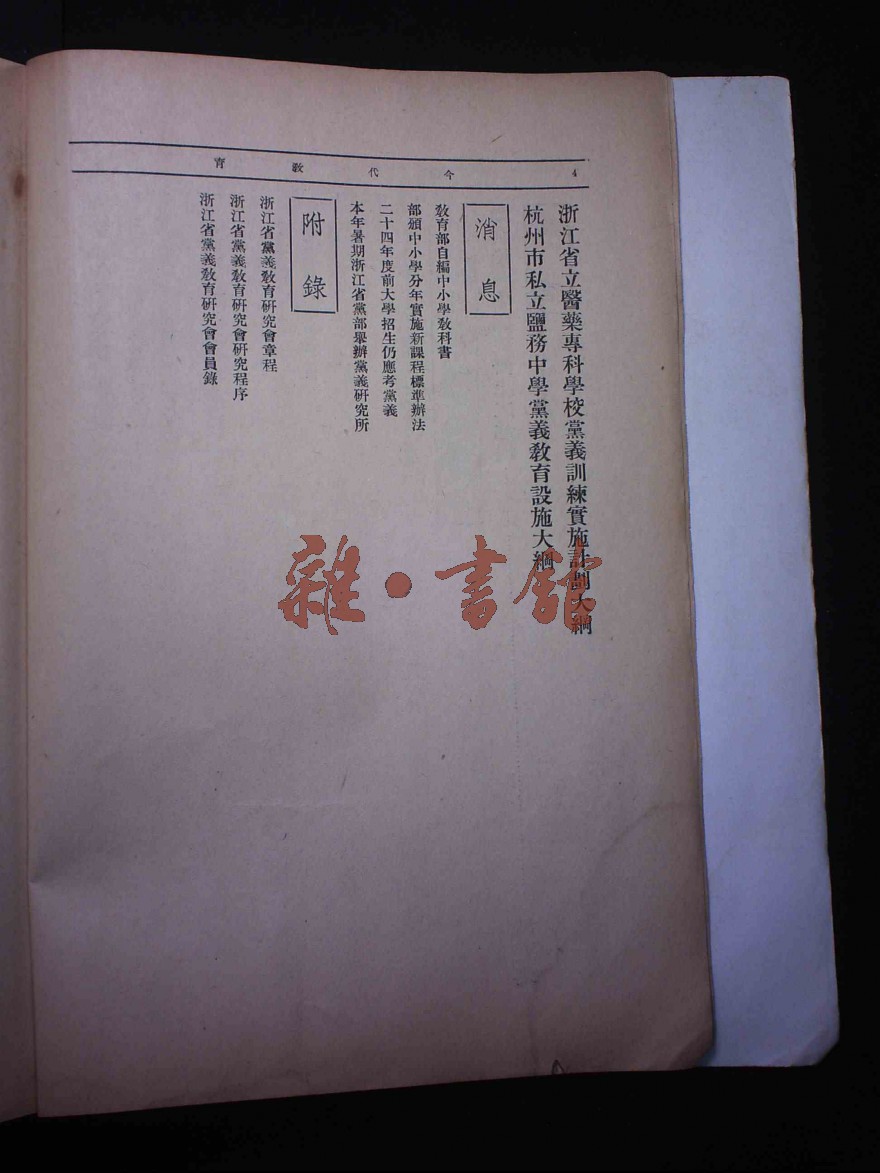 4 今代教育
浙江省立醫藥專科學校黨義訓練實施計劃大綱
杭州市私立鹽務中學黨義教育設施大綱
消息
教育部自編中小學教科書
部頒中小學分年實施新課程標準辦法
二十四年度前大學招生仍應考黨義
本年暑期浙江省黨部舉辦黨義研究所
附錄
浙江省黨義教育研究會章程
浙江省黨義教育研究會研究程序
浙江省黨義教育研究會會員錄
雜·書館